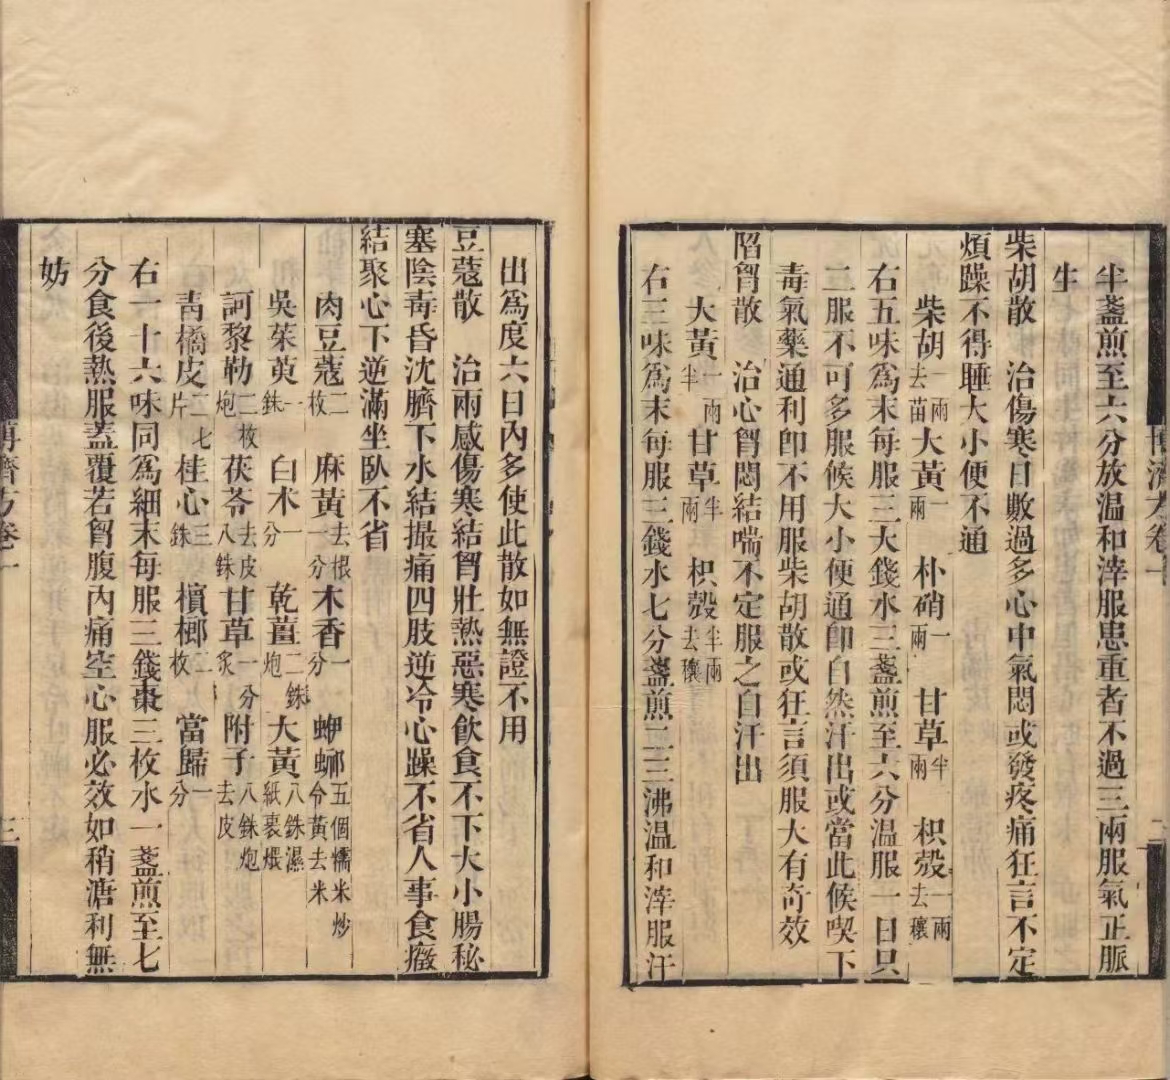 半盞煎至六分放温和滓服患重者不過三兩服氣正脈
生
柴胡散　治傷寒日數過多心中氣悶或發疼痛狂言不定
煩躁不得睡大小便不通
柴胡一兩去苗大黃一兩　朴硝一兩　甘草半兩　枳殼一兩去穰
右五味爲末每服三大錢水三盞煎至六分温服一日只
二服不可多服候大小便通卽自然汗出或當此候喫下
毒氣藥通利卽不用服柴胡散或狂言須服大有奇效
陷胷散　治心胷悶結喘不定服之自汗出
大黃一兩半甘草半兩　枳殼半兩去穰
右三味爲末每服三錢水七分盞煎二三沸温和滓服汗
博濟方卷一
二
出爲度六日內多使此散如無證不用
豆蔻散　治兩感傷寒結胷壯熱惡寒飲食不下大小腸秘
塞陰毒昏沈臍下水結撮痛四肢逆冷心躁不省人事食癥
結聚心下逆滿坐臥不省
肉豆蔻二枚　麻黃去根一分木香一分　蝍蜽五個糯米炒令黃去米
吳茱萸一銖　白朮一分　乾薑二銖炮　大黃八銖濕紙裹煨
訶黎勒二枚炮　茯苓去皮八銖甘草一分炙　附子八銖炮去皮
靑橘皮二七片　桂心三銖　檳榔二枚　當歸一分
右一十六味同爲細末每服三錢棗三枚水一盞煎至七
分食後熱服蓋覆若胷腹內痛空心服必效如稍溏利無
妨
博濟方卷一
三